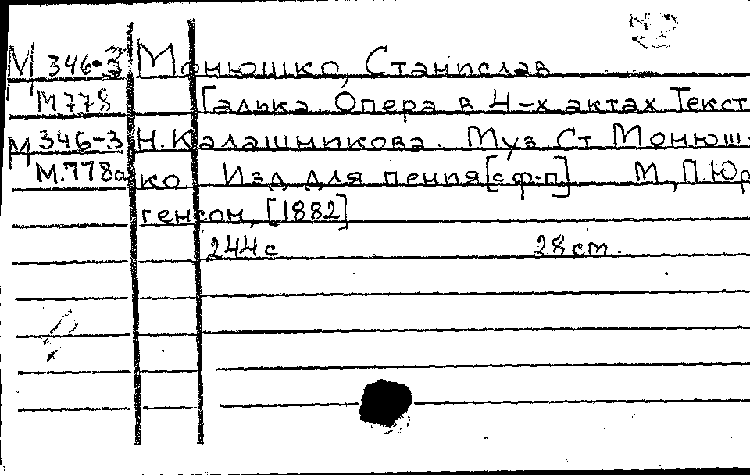 М 346-3 Монюшко, Станислав
М778 Галька. Опера в 4-х актах Текст
М 346-3 Н. Калашникова. Муз Ст Монюш-
М.778а ко Изд для пения [с ф-п] М, П.Юр
генсон, [1882]
244 с 28 ст.